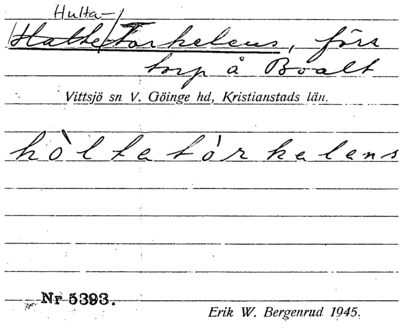 Hulta-/
/Hatte/Torkelens, förr
torp å Boalt
Vittsjö sn V. Göinge hd, Kristianstads län.
hòltatòrkelens
Nr 5393.
Erik W. Bergenrud 1945.